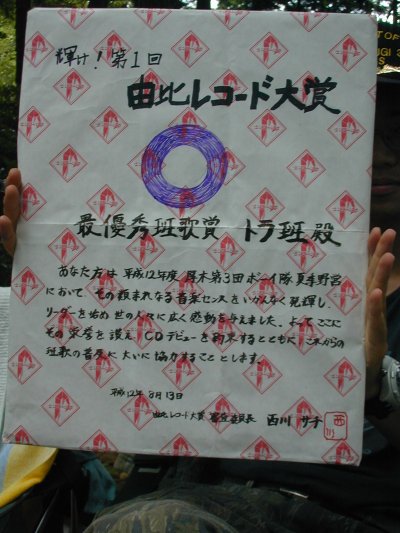 輝け！第1回
由比レコード大賞
最優秀班歌賞 トラ班殿
あなた方は 平成12年度 厚木第3団ボーイ隊夏季野営
において、その類まれなる音楽センスをいかんなく発揮し
リーダーを始め世の人々に広く感動を与えました。よってここに
その栄誉を讃え CDデビューを約束するとともに これからの
班歌の普及に大いに協力することとします。
平成12年 8月13日
由比レコード大賞 審査委員長 西川 サチ
西川
TOF
UGI 3
S